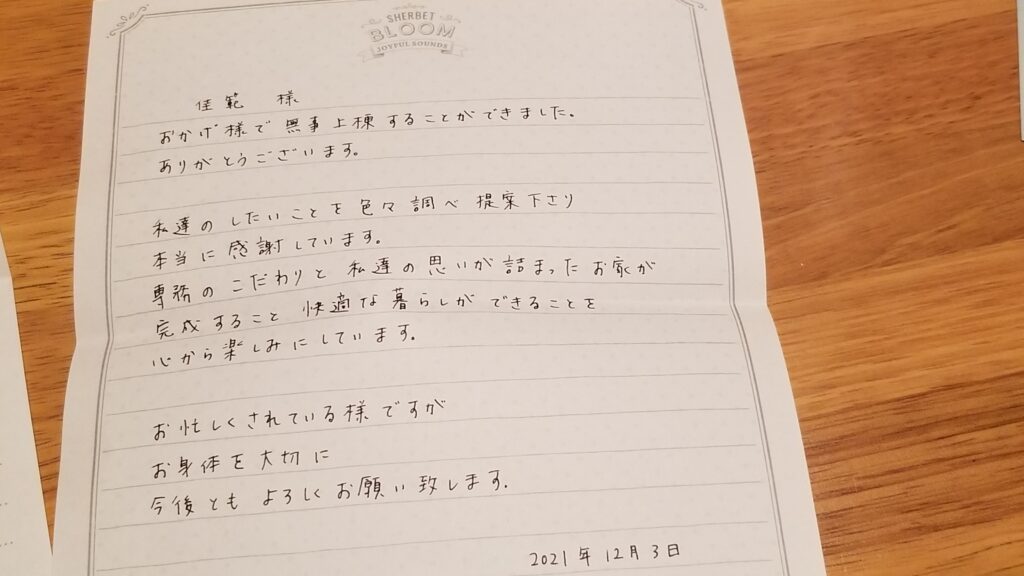 SHERBET
BLOOM
JOYFUL SOUNDS
佳範 様
おかげ様で 無事上棟することができました。
ありがとうございます。
私達の したいことを 色々 調べ 提案下さり
本当に 感謝しています。
専務の こだわりと 私達の 思いが 詰まった お家が
完成すること 快適な 暮らしが できることを
心から 楽しみに しています。
お忙しくされている様ですが
お身体を 大切に
今後とも よろしく お願い致します。
2021年 12月 3日